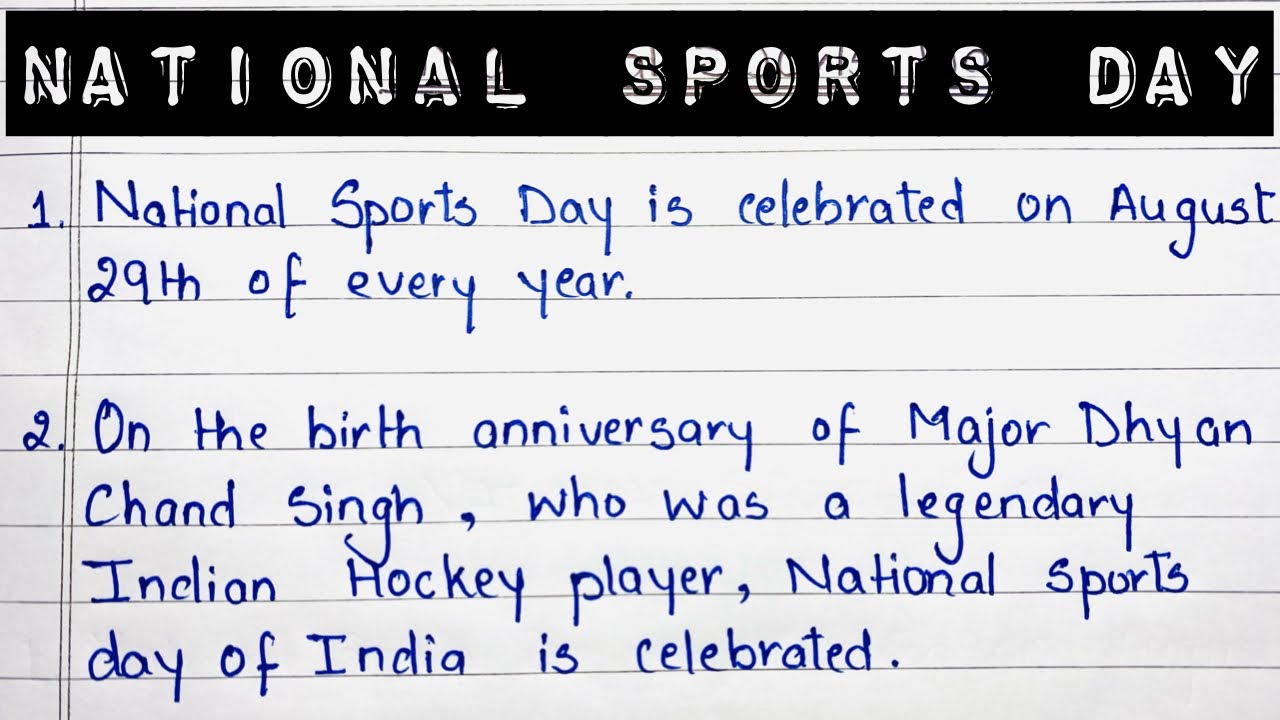 NATIONAL SPORTS DAY
1. National Sports Day is celebrated on August
29th of every year.
2. On the birth anniversary of Major Dhyan
Chand Singh, who was a legendary
Indian Hockey player, National sports
day of India is celebrated.